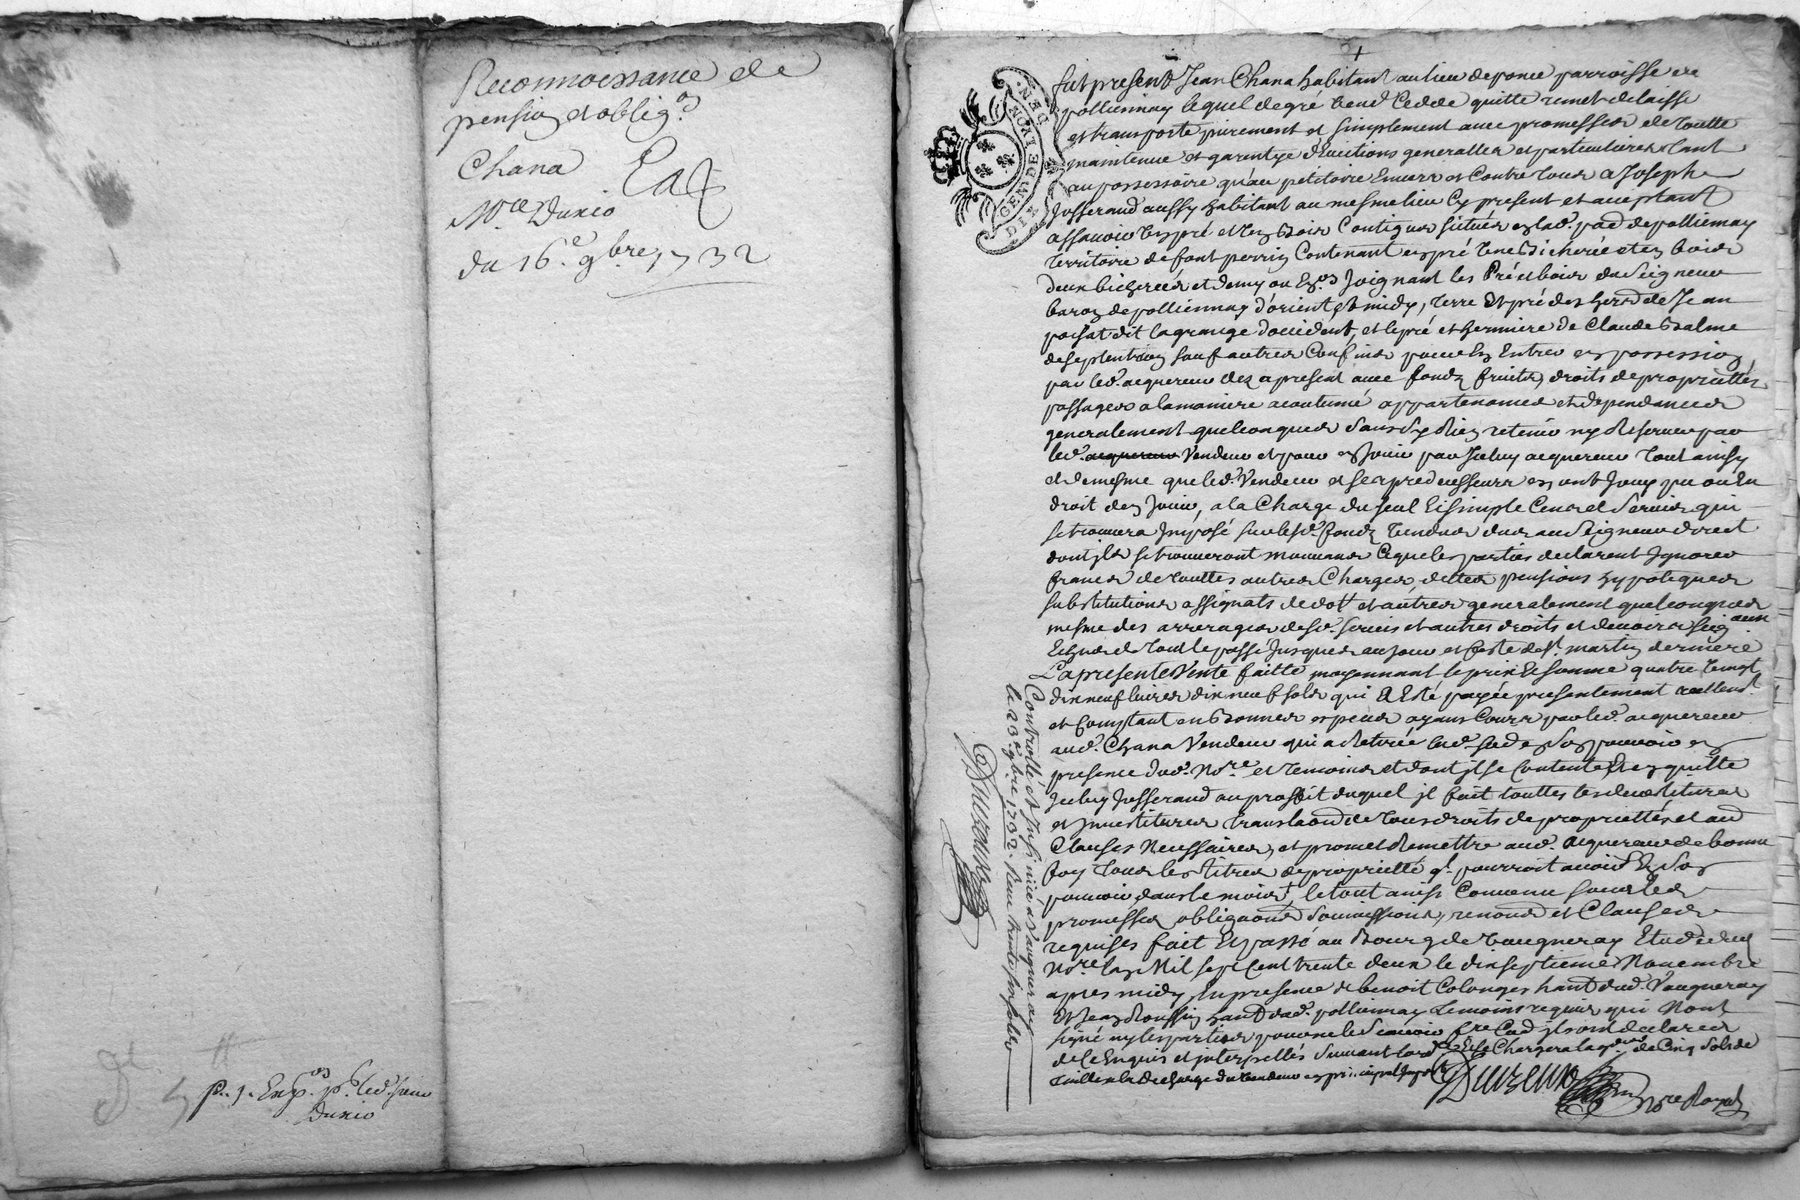 Reconnoessance de
pension et oblig.on
Chana
Mre Durio
du 16e 9bre 1732
p. 1. Exp.on pr led. sieur
Durio
GEN DE LYON
fut present Jean Chana habitant au lieu de ponce parroisse de
pollionnay lequel de gré vend cedde quitte remet delaisse
et transporte purement et simplement avec promesses de toutte
maintenue et garentye d'Evictions generalles et particulieres tant
au possessoire qu'au petitoire Envers et Contre tous a Joseph
Josserand aussy habitant au mesme lieu Cy present et aceptant
assavoir un pré et un bois Contigus situés en lad. par. de pollionnay
territoire de font perrin Contenant en pré une bicherée et en bois
deux bicherées et demy ou En.on Joignant les Pré et bois du Seigneur
baron de pollionnay d'orient et midy, terre Et pré des hers de Jean
poisat dit la grange d'occident, et le pré et hermiere de Claude Balme
de septentrion sauf autres Confins pour En Entrer en possession
par led. acquereur dez a present avec fonds fruits, droits de proprietté
passages a la maniere acoutumé appartenances et dependances
generalement quelconques sans y rien retenir ny Reserver par
led. acquereur Vendeur et pour en Jouir par Iceluy acquereur tout ainsy
et de mesme que led. Vendeur et ses predecesseurs en ont Jouy pu ou du
droit den Jouir, a la Charge du seul Et simple Cens et Servis qui
se trouvera Imposé sur lesd. fonds vendus dus au Seigneur direct
dont ils se trouveront mouvans Ce que les parties declarent Ignorer
francs de touttes autres Charges dettes pensions hypoteques
substitutions assignats de dott et autres generalement quelconques
mesme des arrerages desd. servis et autres droits et devoirs seig.aux
Echus de tout le passé Jusques au jour et feste de St. martin derniere
La presente Vente faitte moyennant le prix Et somme quatre vingt
dix neuf livres dix neuf sols qui a Esté payée presentement reellem.t
et Comptant en bonnes especes ayans Cours par led. acquereur
aud. Chana Vendeur qui a Retirée lad. so.e de son pouvoir en
presence dud. Nore et temoins et dont il se Contente Et en quitte
Iceluy Josserand au proffit duquel il fait touttes les devestitures
et Investitures translaons de tous droits de propriettés et aux
Clauses Necessaires, et promet Remettre aud. acquereur de bonne
foy tous les titres de proprietté q'l pourroit avoir En son
pouvoir dans le mois, le tout ainsi Convenu sous les
promesses obligaons soumissions, renons et Clauses
requises fait Et passé au Bourg de Vaugneray Etude dud
Nore l'an Mil sept Cent trente deux le dix septieme Novembre
apres midy, En presence de benoit Colonges hant dud. Vaugneray
Et Jean Roussin hant dud. pollionnay temoins requis qui Nont
signé ny les parties pour ne le Scavoir fre Cod ils ont declarer
de Ce Enquis et interpellés Suivant l'ord.ce Et se Chargera lacq.reur de Cinq sols de
taille a la decharge du vendeur en principal Impôt
Duzeun
Nore Royal
Controllé et Insinué a Vaugneray
le 23e 9bre 1732. Reçu trente six sols
Duzeun